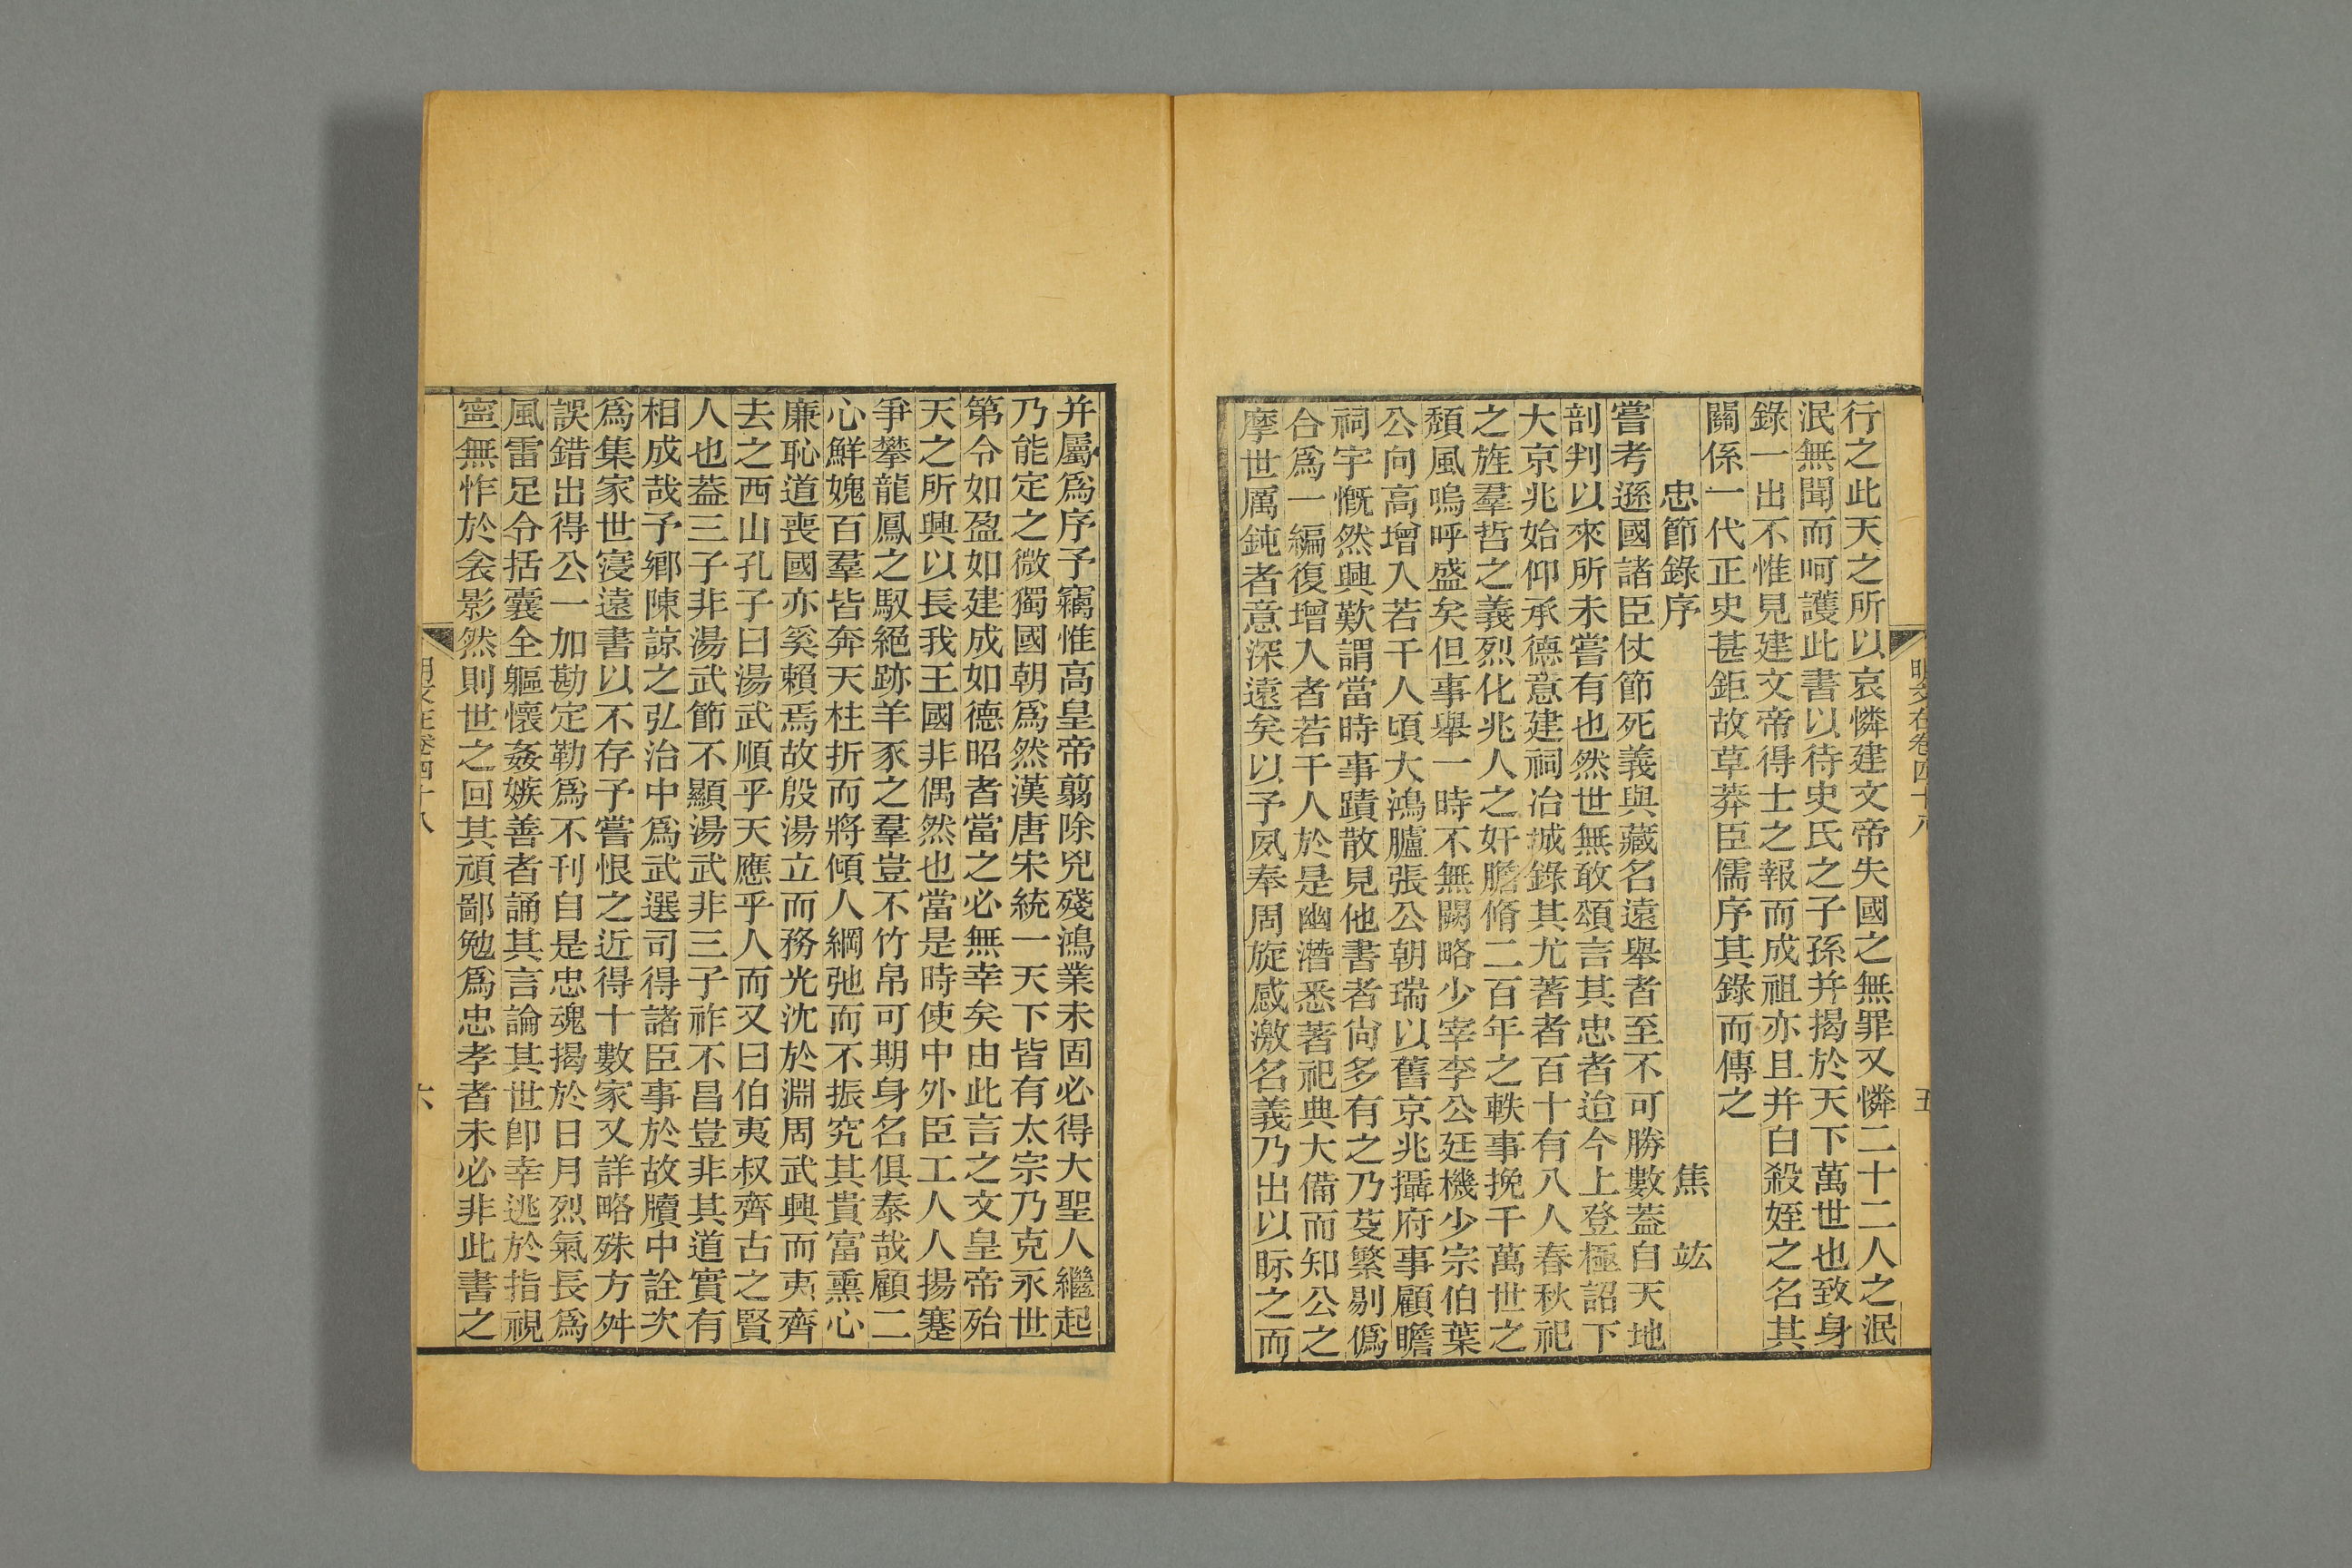 明文在卷四十八
五
行之此天之所以哀憐建文帝失國之無罪又憐二十二人之泯
泯無聞而呵護此書以待史氏之子孫并揭於天下萬世也致身
錄一出不惟見建文帝得士之報而成祖亦且并白殺姪之名其
關係一代正史甚鉅故草莽臣儒序其錄而傳之
忠節錄序
焦竑
嘗考遜國諸臣仗節死義與藏名遠舉者至不可勝數葢自天地
剖判以來所未嘗有也然世無敢頌言其忠者迨今上登極詔下
大京兆始仰承德意建祠冶城錄其尤著者百十有八人春秋祀
之旌羣哲之義烈化兆人之奸膽脩二百年之軼事挽千萬世之
頹風嗚呼盛矣但事舉一時不無闕略少宰李公廷機少宗伯葉
公向高增入若干人頃大鴻臚張公朝瑞以舊京兆攝府事顧瞻
祠宇慨然興歎謂當時事蹟散見他書者尙多有之乃芟繁剔僞
合爲一編復增入者若干人於是幽潛悉著祀典大備而知公之
摩世厲鈍者意深遠矣以予夙奉周旋感激名義乃出以眎之而
并屬爲序予竊惟高皇帝翦除兇殘鴻業未固必得大聖人繼起
乃能定之微獨國朝爲然漢唐宋統一天下皆有太宗乃克永世
第令如盈如建成如德昭者當之必無幸矣由此言之文皇帝殆
天之所興以長我王國非偶然也當是時使中外臣工人人揚蹇
爭攀龍鳳之馭絕跡羊豕之羣豈不竹帛可期身名俱泰哉顧二
心鮮媿百羣皆奔天柱折而將傾人綱弛而不振究其貴富熏心
廉恥道喪國亦奚賴焉故殷湯立而務光沈於淵周武興而夷齊
去之西山孔子曰湯武順乎天應乎人而又曰伯夷叔齊古之賢
人也葢三子非湯武節不顯湯武非三子祚不昌豈非其道實有
相成哉予鄕陳諒之弘治中爲武選司得諸臣事於故牘中詮次
爲集家世寖遠書以不存予嘗恨之近得十數家又詳略殊方舛
誤錯出得公一加勘定勒爲不刊自是忠魂揭於日月烈氣長爲
風雷足令括囊全軀懷姦嫉善者誦其言論其世卽幸逃於指視
寍無怍於衾影然則世之回其頑鄙勉爲忠孝者未必非此書之
明文在卷四十八
六